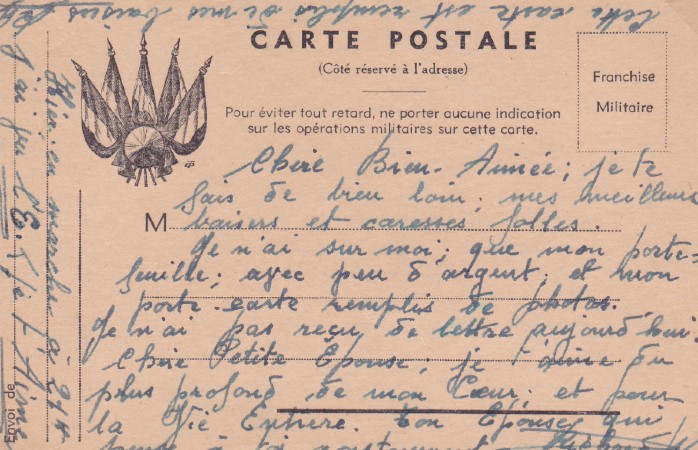 Cette carte est remplis de mes baisers
CARTE POSTALE
(Côté réservé à l'adresse)
Franchise
Militaire
Pour éviter tout retard, ne porter aucune indication
sur les opérations militaires sur cette carte.
Chère Bien-Aimée; je te
fais de bien loin; mes meilleurs
M baisers et caresses folles.
Je n'ai sur moi; que mon porte-
feuille; avec peu d'argent; et mon
porte-carte remplis de photos.
Je n'ai pas reçu de lettre aujourd'hui.
Chère Petite Épouse; je t'aime du
plus profond de mon Cœur; et pour
la Vie Entière. Ton qui
pense à toi
Hier en marche à
j'ai
Je t'Aime
Envoi de